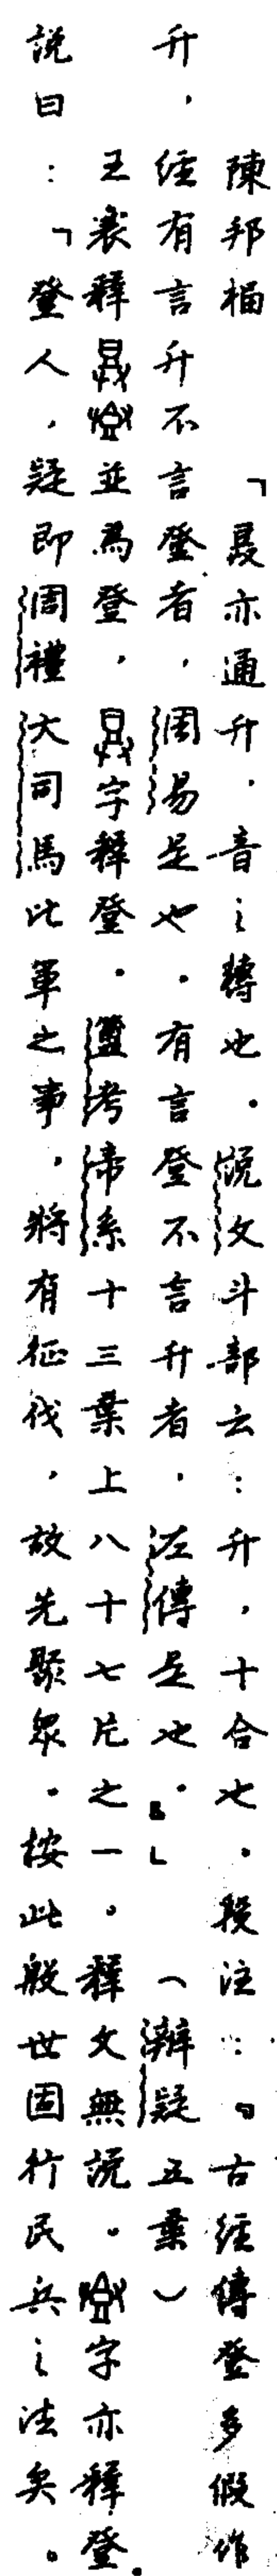 陳邦楅　「䢅亦通升，音之轉也。說文斗部云：升，十合也。段注：『古經傳登多假作
升，經有言升不言登者，周易是也。有言登不言升者，左傳是也。』」（辨疑五葉）
王襄釋並爲登，字釋登。簠考帝系十三葉上八十七片之一。釋文無說。字亦釋登。
說曰：「登人，疑即周禮大司馬比軍之事，將有征伐，故先聚眾。按此殷世固行民兵之法矣。